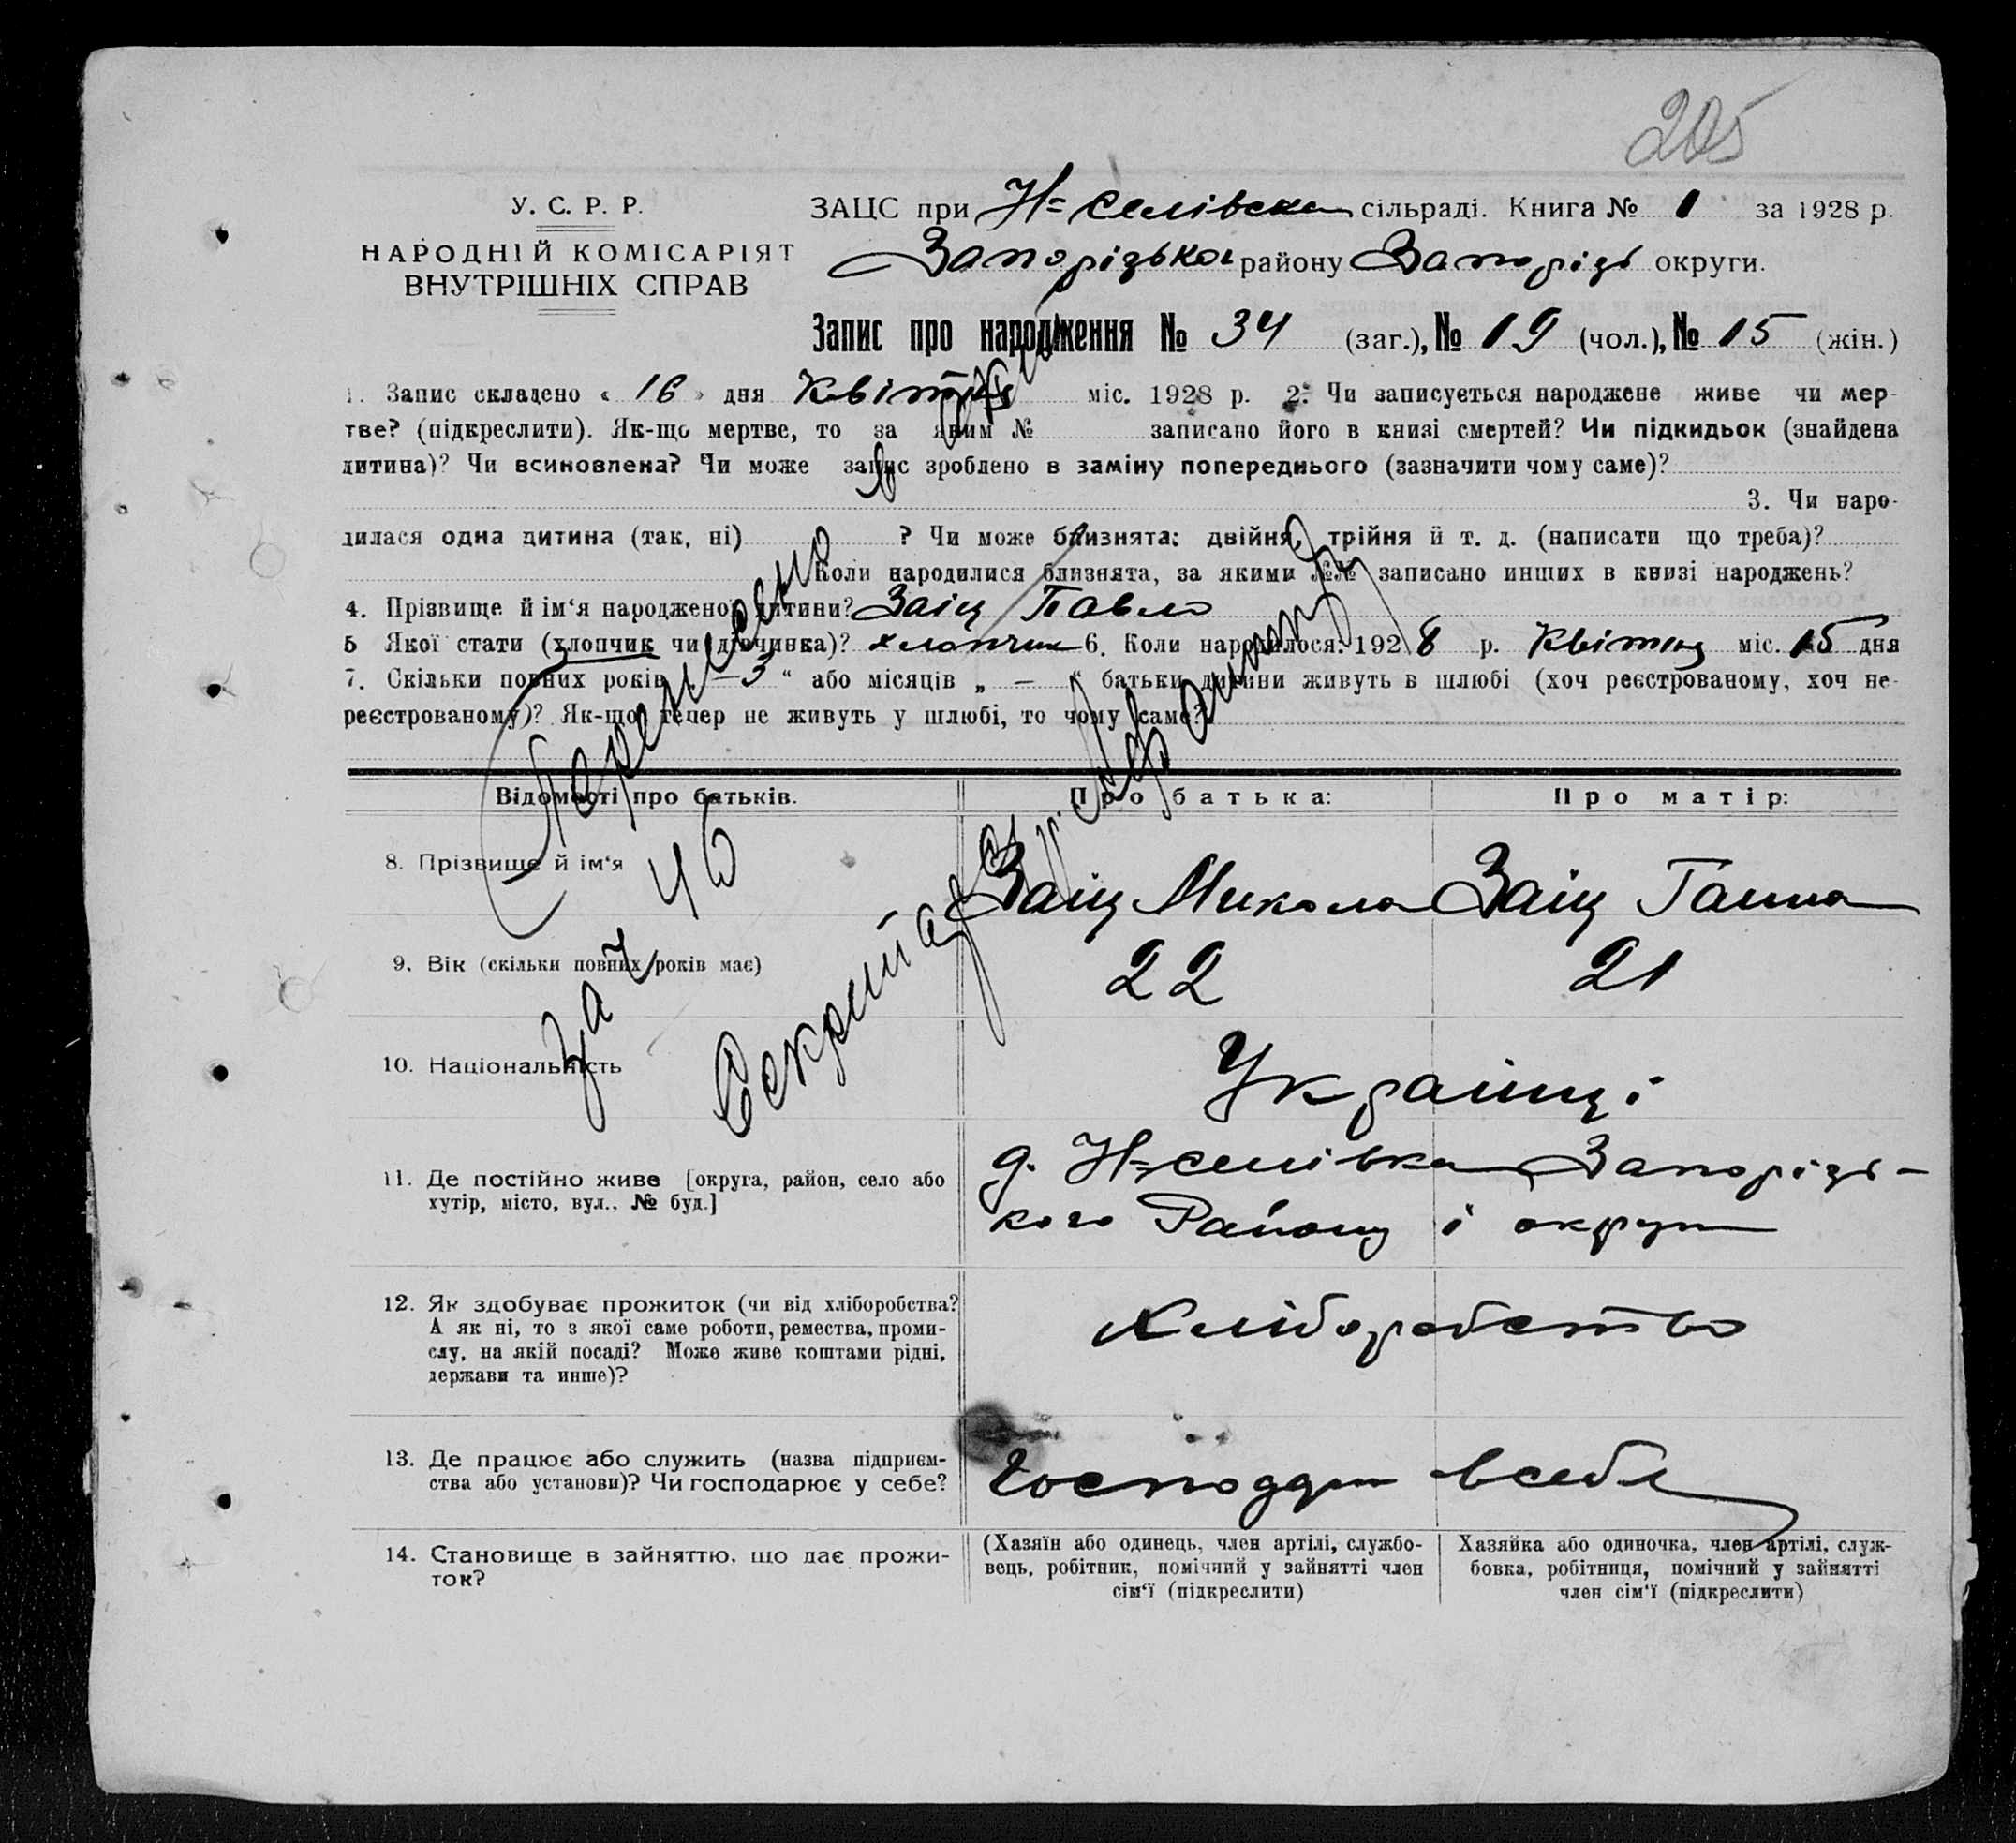 205
У. С. Р. Р.
НАРОДНІЙ КОМІСАРІЯТ
ВНУТРІШНІХ СПРАВ
ЗАЦС при Н=селівска сільраді. Книга № 1 за 1928 р.
Запорізького району Запорізь округи.
Запис про народження № 34 (заг.), № 19 (чол.), № 15 (жін.)
1. Запис складено « 16 » дня Квітня міс. 1928 р. 2. Чи записується народжене живе чи мер-
тве? (підкреслити). Як-що мертве, то за яким № записано його в книзі смертей? Чи підкидьок (знайдена
дитина)? Чи всиновлена? Чи може запис зроблено в заміну попереднього (зазначити чому саме)?
3. Чи наро-
дилася одна дитина (так, ні) ? Чи може близнята: двійня, трійня й т. д. (написати що треба)?
Коли народилися близнята, за якими №№ записано инших в книзі народжень?
4. Прізвище й ім‘я народженої дитини? Заіц Павло
5 Якої стати (хлопчик чи дівчинка)? хлопчик 6. Коли народилося: 1928 р. Квітня міс. 15 дня
7. Скільки повних років „ 3 “ або місяців „ — “ батьки дитини живуть в шлюбі (хоч реєстрованому, хоч не-
реєстрованому)? Як-що тепер не живуть у шлюбі, то чому саме?
Перенесено
за ч 46
Секритар
Відомості про батьків.
Про батька:
Про матір:
8. Прізвище й ім‘я
Заіц Микола
Заіц Ганна
9. Вік (скільки повних років має)
22
21
10. Національність
Українці
11. Де постійно живе [округа, район, село або
хутір, місто, вул., № буд.]
д. Н=селівка Запорізь-
кого Району і округи
12. Як здобуває прожиток (чи від хліборобства?
А як ні, то з якої саме роботи, ремества, проми-
слу, на якій посаді? Може живе коштами рідні,
держави та инше)?
Хліборобство
13. Де працює або служить (назва підприєм-
ства або установи)? Чи господарює у себе?
всебе
14. Становище в зайняттю, що дає прожи-
ток?
(Хазяїн або одинець, член артілі, службо-
вець, робітник, помічний у зайнятті член
сім‘ї (підкреслити)
Хазяйка або одиночка, член артілі, служ-
бовка, робітниця, помічний у зайнятті
член сім‘ї (підкреслити)